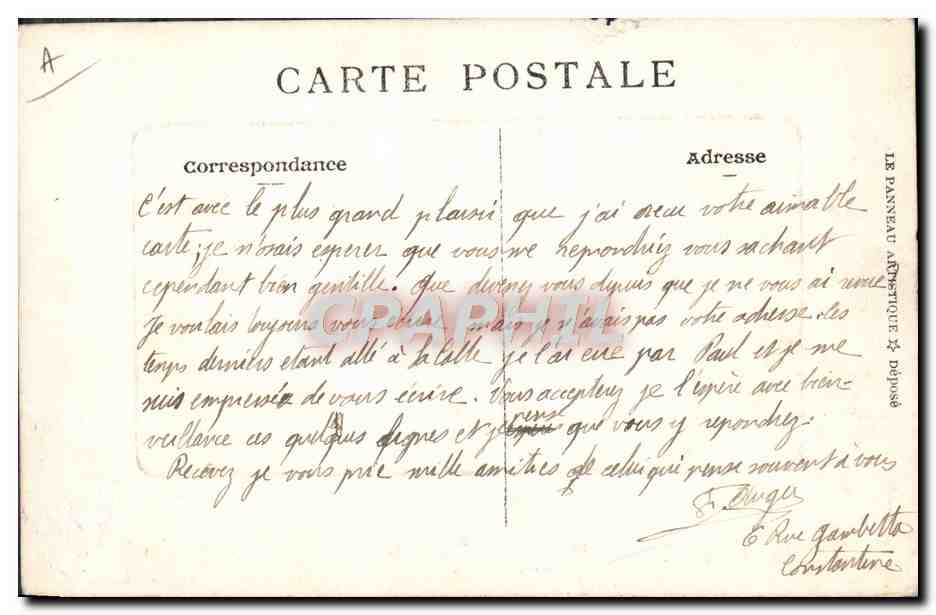 A
CARTE POSTALE
Correspondance
Adresse
C'est avec le plus grand plaisir que j'ai recu votre aimable
carte; je n'osais esperer que vous me repondriez vous sachant
cependant bien gentille. Que devenez vous depuis que je ne vous ai revue
Je voulais toujours vous ecrire mais je n'avais pas votre adresse. Les
temps derniers etant allé à la Calle je l'ai eue par Paul et je me
suis empressé de vous écrire. Vous accepterez je l'espère avec bien-
veillance ces quelques lignes et je pense que vous y repondrez.
Recevez je vous prie mille amitiés de celui qui pense souvent à vous
6 Rue Gambetta
Constantine
LE PANNEAU ARTISTIQUE ☆ Déposé
CPAPHIL